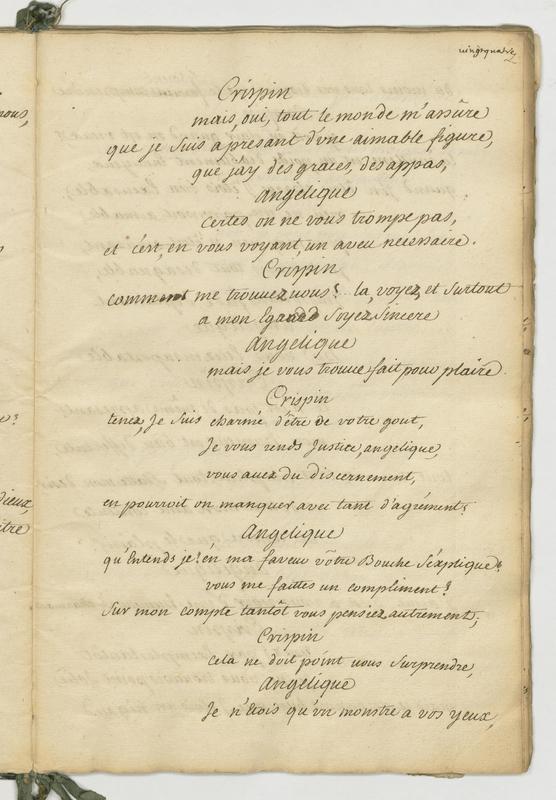 vingtquatre
Crispin
mais, oui, tout le monde m'assûre
que je suis apresant d'vne aimable figure,
que j'ay des graces, des appas,
angelique
certes on ne vous trompe pas,
et c'est, en vous voyant, un aveu necessaire.
Crispin
comment me trouvez vous? la, voyez, et surtout
a mon Egard Soyez Sincere
Angelique
mais je vous trouve fait pour plaire.
Crispin
tenez, Je suis charmé d'être de votre gout,
Je vous rends Justice, angelique,
vous avez du discernement,
en pourroit on manquer avec tant d'agrément?
Angelique
qu'Entends je! en ma faveur vôtre Bouche S'éxplique?
vous me faittes un compliment?
Sur mon compte tantôt vous pensiez autrement;
Crispin
cela ne doit point vous Surprendre,
Angelique
Je n'étois qu'vn monstre a vos yeux,
nous,
dieux,